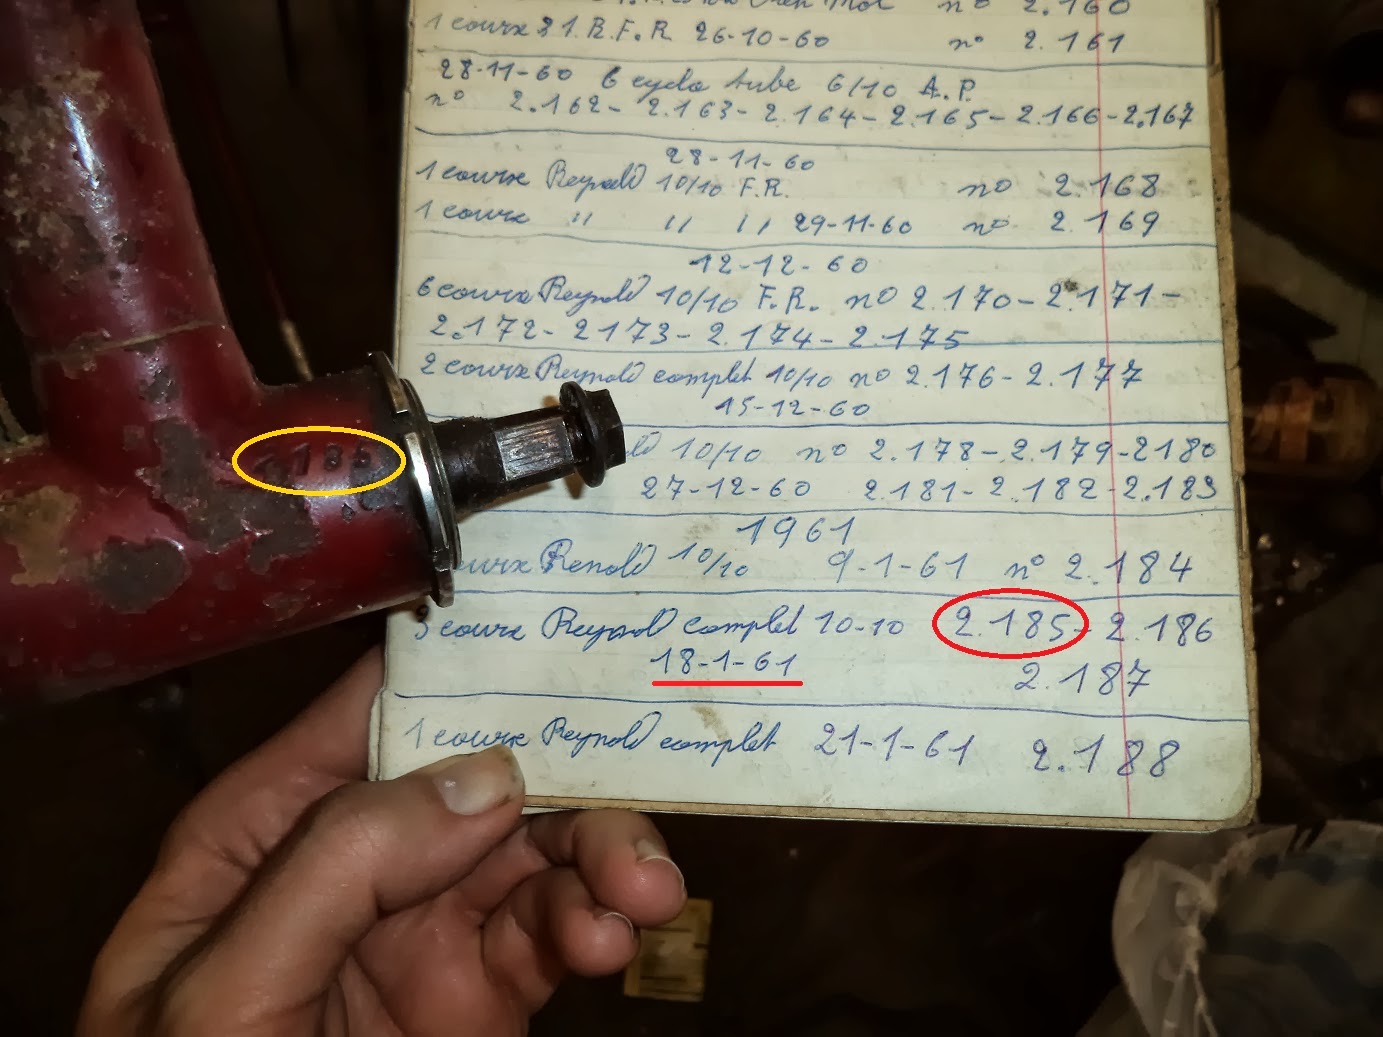 n° 2.160
1 course 31. R.F.R 26-10-60 n° 2.161
28-11-60 6 cyclo tube 6/10 A.P.
n° 2.162- 2.163- 2.164- 2.165- 2.166-2.167
28-11-60
1 course Reynold 10/10 F.R. n° 2.168
1 course " " " 29-11-60 n° 2.169
12-12-60
6 course Reynold 10/10 F.R. n° 2.170-2.171-
2.172-2173-2.174-2.175
2 course Reynold complet 10/10 n° 2.176-2.177
15-12-60
10/10 n° 2.178-2.179-2180
27-12-60 2.181-2.182-2.183
1961
Renold 10/10 9-1-61 n° 2.184
3 course Reynold complet 10-10 2.185-2.186
18-1-61 2.187
1 course Reynold complet 21-1-61 2.188
2185